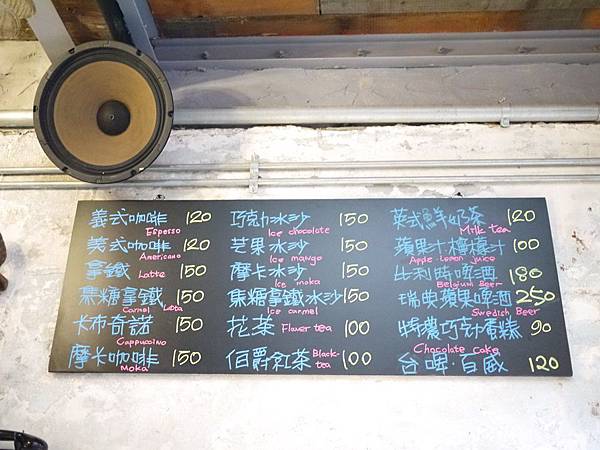 義式咖啡 120
Espesso
美式咖啡 120
Americano
拿鐵 Latte 150
焦糖拿鐵 150
Carmel Latta
卡布奇諾 150
Cappuccino
摩卡咖啡 150
Moka
巧克力冰沙 150
Ice chocolate
芒果冰沙 150
Ice mango
摩卡冰沙 150
Ice moka
焦糖拿鐵冰沙 150
Ice carmel
花茶 Flower tea 100
伯爵紅茶 Black-tea 100
英式鮮奶茶 120
Milk tea
蘋果汁檸檬汁 100
Apple. Lemon juice
比利時啤酒 180
Belgium Beer
瑞典蘋果啤酒 250
Swedish Beer
特濃巧克力蛋糕 90
Chocolate cake
台啤·百威 120